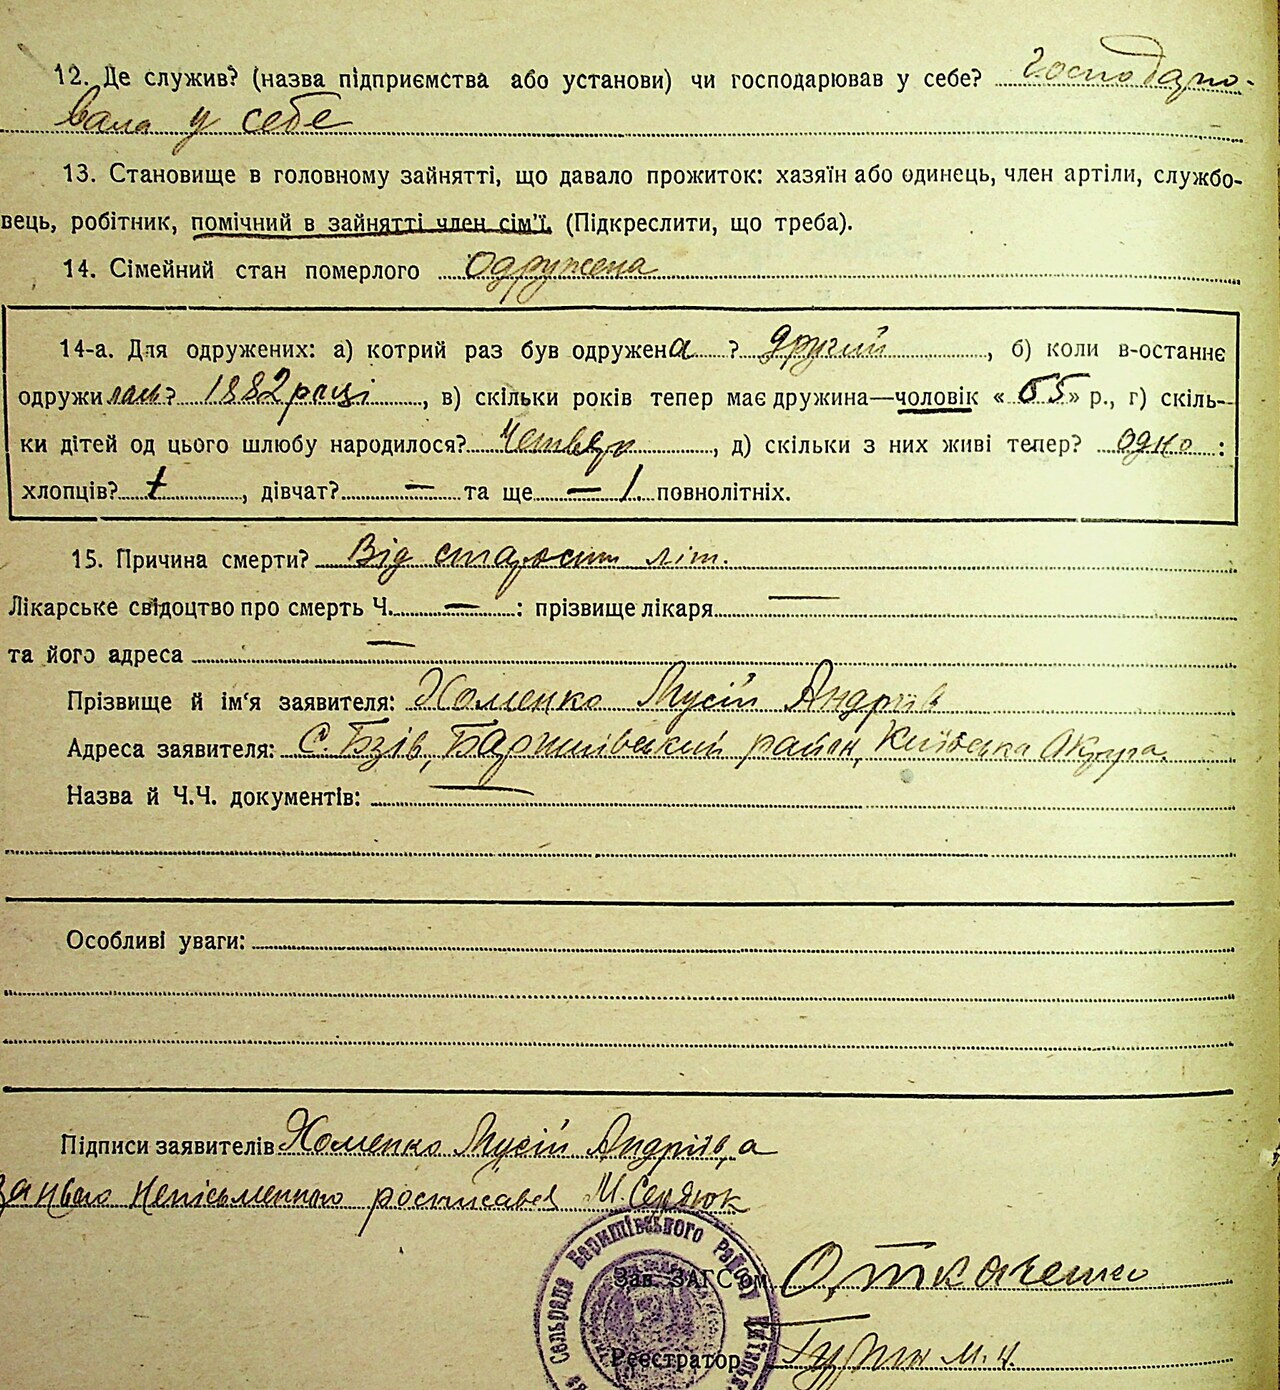 12. Де служив? (назва підприємства або установи) чи господарював у себе? господарю-
вала у себе
13. Становище в головному зайнятті, що давало прожиток: хазяїн або одинець, член артіли, службо-
вець, робітник, помічний в зайнятті член сім'ї. (Підкреслити, що треба).
14. Сімейний стан померлого одружена
14-а. Для одружених: а) котрий раз був одружена ? другий , б) коли в-останнє
одружилась? 1882 році , в) скільки років тепер має дружина—чоловік « 65 » р., г) скіль-
ки дітей од цього шлюбу народилося? Четверо , д) скільки з них живі тепер? одно :
хлопців? , дівчат? — та ще — 1. повнолітніх.
15. Причина смерти? Від старости літ.
Лікарське свідоцтво про смерть Ч. — : прізвище лікаря —
та його адреса —
Прізвище й ім'я заявителя: Хоменко Мусій Андріїв
Адреса заявителя: С. Бзів, Баришівський район, Київська Округа.
Назва й Ч.Ч. документів: —
Особливі уваги:
Підписи заявителів Хоменко Мусій Андріїв, а
за нього неписьменного росписавсь М. Сердюк
Сельрада Баришівського Району
Зав. ЗАГС'ом О. Ткаченко
Реєстратор